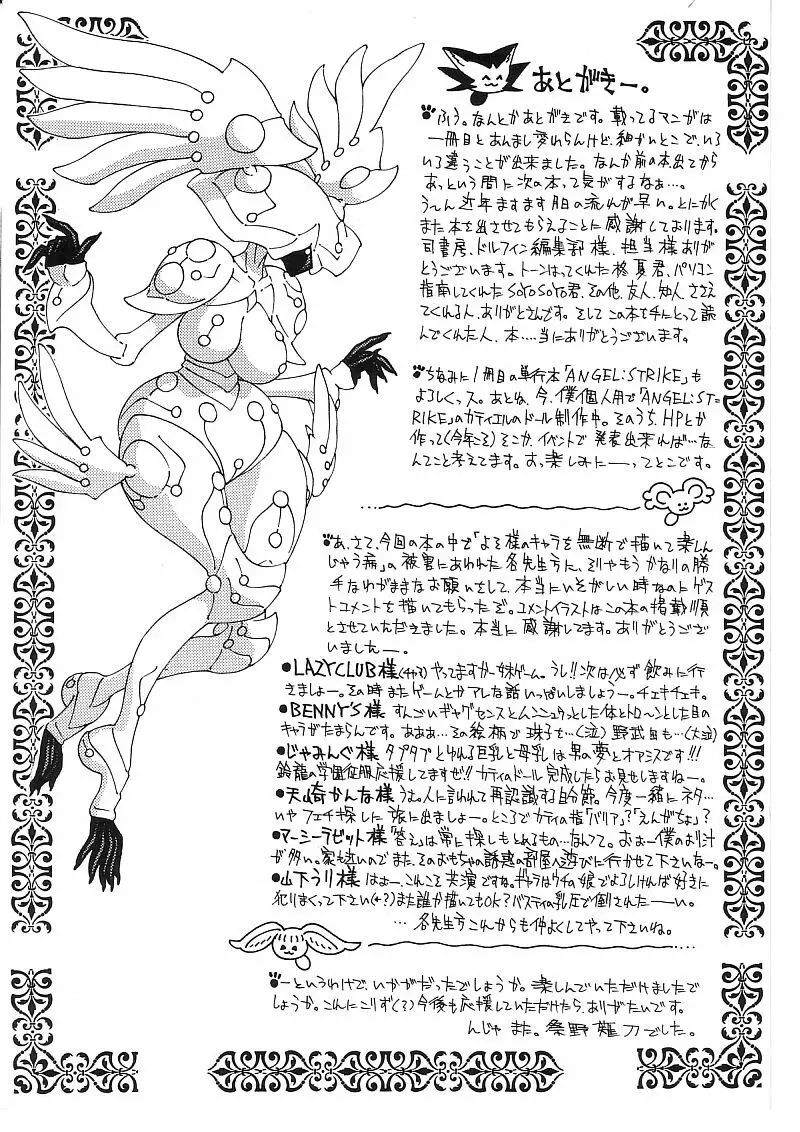 あとがきー。
ふぅ。なんとかあとがきです。載ってるマンガは
一冊目とあんまし変わらんけど、細かいとこで、いろ
いろ違うことが出来ました。なんか前の本出てから
あっという間に次の本って気がするなぁ…。
う〜ん近年ますます月日の流れが早い。とにかく
また本を出させてもらえることに感謝しております。
司書房、ドルフィン編集部様、担当様ありが
とうございます。トーンはってくれた柊夏君、パソコン
指南してくれたSoYoSoYo君、その他、友人、知人、ささえ
てくれる人、ありがとさんです。そしてこの本を手にとって読
んでくれた人、本….当にありがとうございます。
ちなみに1冊目の単行本「ANGEL:STRIKE」も
よろしくっス。あとね、今、僕個人用で「ANGEL:ST-
RIKE」のカティエルのドール制作中。そのうち、HPとか
作って(今年こそ)そこか、イベントで発表出来れば…な
んてこと考えてます。お楽しみにーってとこです。
あ、さて、今回の本の中で「よそ様のキャラを無断で描いて楽しん
じゃう病」の被害にあわれた各先生方に、そりゃもうかなりの勝
手なわがままなお願いをして、本当にいそがしい時なのにゲス
トコメントを描いてもらったぞ。コメントイラストはこの本の掲載順
とさせていただきました。本当に感謝してます。ありがとうござ
いましたー。
●LAZYCLUB様 やってますかー妹ゲーム。うし!!次は必ず飲みに行
きましょー。その時またゲームとかアレな話いっぱいしましょうー。チェキチェキ。
●BENNY'S様 すんごいギャグセンスとムンニュウっとした体とトローンとした目の
キャラがたまらんです。あああ…その絵柄で 珠もで…(泣)野武目も…(大泣)
●じゃみんぐ様 タプタプとゆれる巨乳と母乳は男の夢とオアシスです!!!
鈴龍の学園征服応援してますぜ!! カティのドール完成したらお見せしますねー。
●天山奇かんな様 うむ。人に言われて再認識する自分節。今度一緒にネタ…
いやフェチ探しに旅に出ましょー。ところでカティの指「バリア」?「えんがちょ」?
●マーシーラビット様 「答え」は常に探しもとめるもの…なんつて。おぉー僕のお汁
が多い。家も近いのでまた、そのおもちゃの誘惑の部屋へ遊びに行かせて下さいなー。
●山下うり様 はぉー、これこそ共演ですね。ギャラはウチの娘でよろしければ好きに
犯りまくって下さい(+?)また誰か描いてもOK?バスティの乳圧で倒されたーい。
…各先生方これからも仲よくしてやって下さいね。
ーというわけで、いかがだったでしょうか。楽しんでいただけましたで
しょうか。これにこりず(?)今後も応援していただけたら、ありがたいです。
んじゃ また。桑野難刀でした。